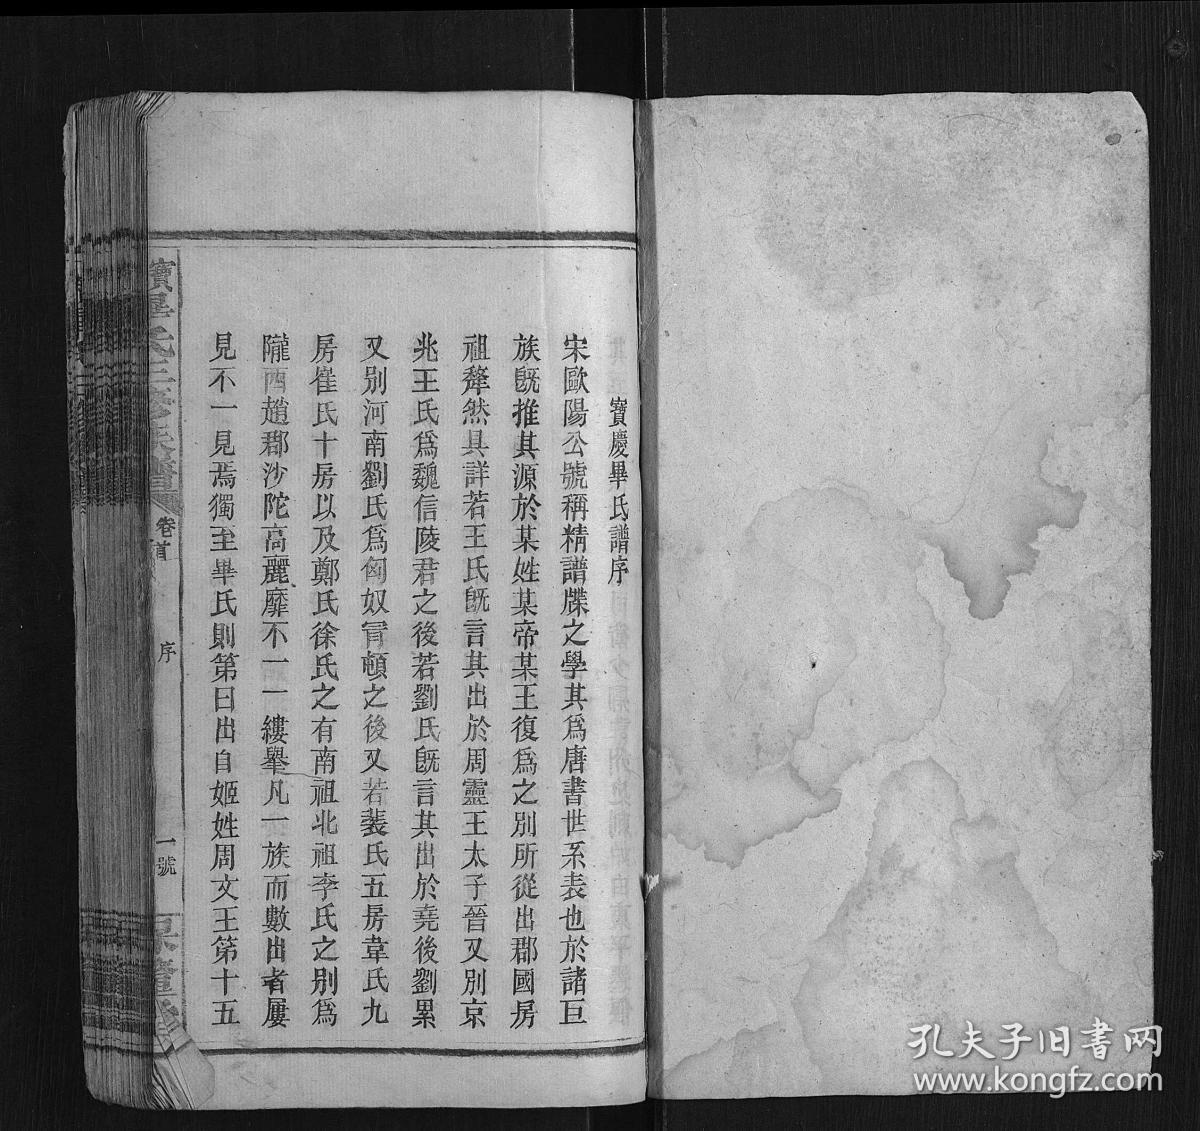 寶慶畢氏譜序
宋歐陽公號稱精譜牒之學其爲唐書世系表也於諸巨
族旣推其源於某姓某帝某王復爲之別所從出郡國房
祖犛然具詳若王氏旣言其出於周靈王太子晉又別京
兆王氏爲魏信陵君之後若劉氏旣言其出於堯後劉累
又別河南劉氏爲匈奴冐頓之後又若裴氏五房韋氏九
房崔氏十房以及鄭氏徐氏之有南祖北祖李氏之別爲
隴西趙郡沙陀高麗靡不一一縷舉凡一族而數出者屢
見不一見焉獨至畢氏則第曰出自姬姓周文王第十五
寶畢氏三修族譜
卷首
序
一號
孔夫子旧书网
www.kongfz.com